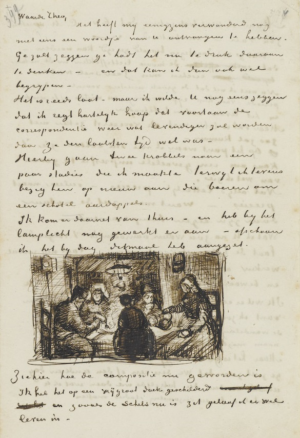 Waarde Theo,
het heeft my eenigzins verwonderd nog
niet eens een woordje van U ontvangen te hebben.
Ge zult zeggen ge hadt het veel te druk daaraan
te denken – en dat kan ik dan ook wel
begrypen –
Het is reeds laat – maar ik wilde U nog eens zeggen
dat ik regt hartelyk hoop dat voortaan de
correspondentie weer wat levendiger zal worden
dan ze den laatsten tyd wel was.
Hierby gaan twee krabbels naar een
paar studies die ik maakte terwyl ik tevens
bezig ben op nieuw aan die boeren om
een schotel aardappels.
Ik kom er daarnet van thuis – en heb by het
lamplicht nog gewerkt er aan – ofschoon
ik het by dag ditmaal heb aangezet.
Ziehier hoe de compositie nu geworden is.
Ik heb het op een vry groot doek geschilderd
en zooals de schets nu is zit geloof ik er wel
leven in –